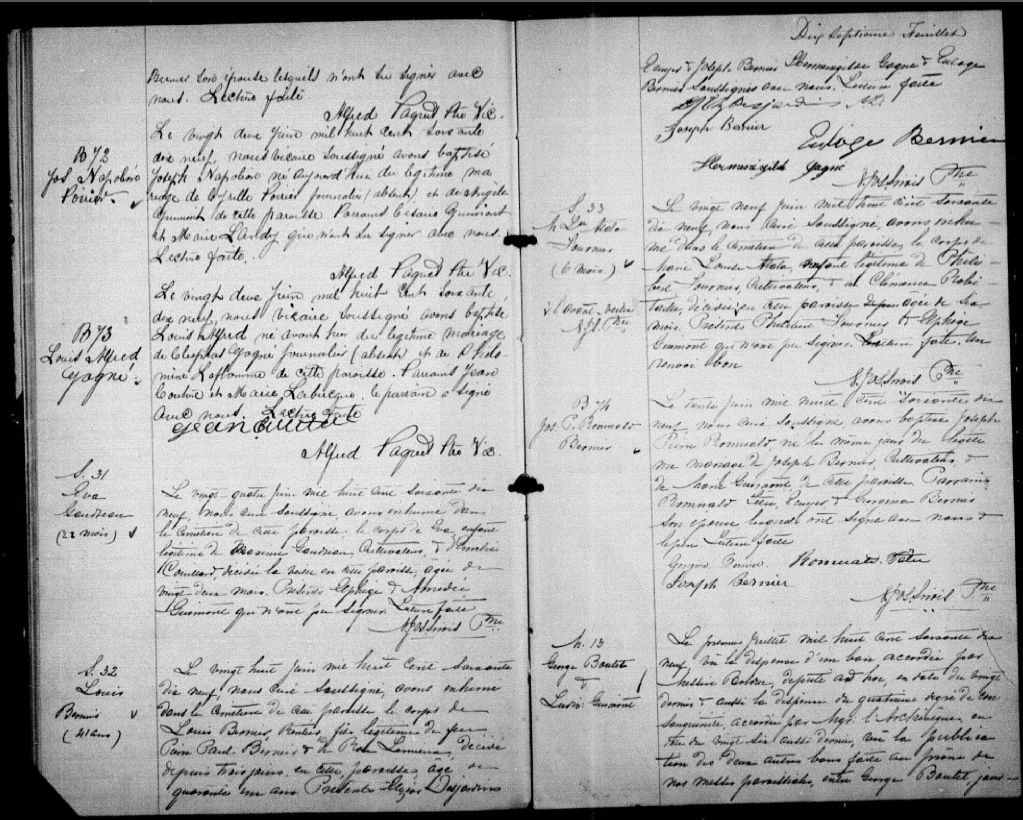 Bernier son épouse lesquels n'ont su signer avec
nous. Lecture faite
Alfred Paquet Ptre Vic.
B 72
Jos Napoléon
Poirier
Le vingt deux Juin mil huit cent soixante
dix neuf, nous vicaire soussigné avons baptisé
Joseph Napoléon né aujourd'hui du légitime ma
riage de Cyrille Poirier journalier (absent) et de Angèle
Guimont de cette paroisse Parrains Césaire Guimont
et Marie Landry qui n'ont su signer avec nous.
Lecture faite.
Alfred Paquet Ptre Vic.
B 73
Louis Alfred
Gagné
Le vingt deux Juin mil huit cent soixante
dix neuf, nous vicaire soussigné avons baptisé
Louis Alfred né avant hier du légitime mariage
de Cléophas Gagné journalier (absent) et de Philo
mène Laflamme de cette paroisse. Parrains Jean
Couture et Marie Labrecque, le parrain a signé
avec nous. Lecture faite
Jean
Alfred Paquet Ptre Vic.
S. 31
Eva
Gaudreau
(22 mois)
Le vingt-quatre juin mil huit cent soixante dix
neuf, nous curé soussigné avons inhumé dans
le cimetière de cette paroisse le corps de Eva, enfant
légitime de Maxime Gaudreau cultivateur, & d'Emélie
Couillard, décédée la veille en cette paroisse, agée de
vingt-deux mois. Présents Elphège & Amédée
Guimont qui n'ont pu signer. Lecture faite
Ptre
S. 32
Louis
Bernier
(41 ans)
Le vingt huit juin mil huit cent soixante
dix neuf, nous curé soussigné, avons inhumé
dans le cimetière de cette paroisse le corps de
Louis Bernier, Rentier, fils légitime de feu
Pierre Paul Bernier & de Rose Lemieux décédé
depuis trois jours en cette paroisse, âgé de
quarante un ans Présents Elzéar Desjardins
Dix septième Feuillet
Ecuyer & Joseph Bernier Hermenegilde Gagné & Euloge
Bernier soussignés avec nous. Lecture faite
Desjardins
Joseph Bernier
Euloge Bernier
Hermenegilde Gagné
Ptre
S. 33
M Lse Atala
Fournier
(6 mois)
Le vingt neuf juin mil huit cent soixante
dix neuf, nous curé soussigné, avons inhu
mé dans le cimetière de cette paroisse, le corps de
Marie Louise Atala, enfant légitime de Phili
bert Fournier, cultivateur, & de Clémence Robi
taille, décédée en cette paroisse agée de six
mois Présents Philibert Fournier & Elphège
Guimont qui n'ont pu signer. Lecture faite. Un
renvoi bon
Ptre
B 74
Jos. P. Romuald
Bernier
Le trente juin mil huit cent soixante dix
neuf nous curé soussigné avons baptisé Joseph
Pierre Romuald né le même jour du légiti
me mariage de Joseph Bernier, cultivateur, &
de Marie Guimont de cette paroisse Parrains
Romuald Fiset, Ecuyer & Georgina Bernier
son épouse lesquels ont signé avec nous &
le père Lecture faite
Romuald Fiset
Joseph Bernier
Ptre
M. 13
George Boutet
&
Guimont
Le premier juillet mil huit cent soixante dix
neuf, vu la dispense d'un ban, accordée par
Messire Bolduc, député ad hoc, en date du vingt
dernier & aussi la dispense du quatrième degré de con
sanguinité, accordée par Mgr. l'Archevêque, en
date du vingt six aussi dernier, vu la publica
tion des deux autres bans faite au prône de
nos messes paroissiales, entre George Boutet jour